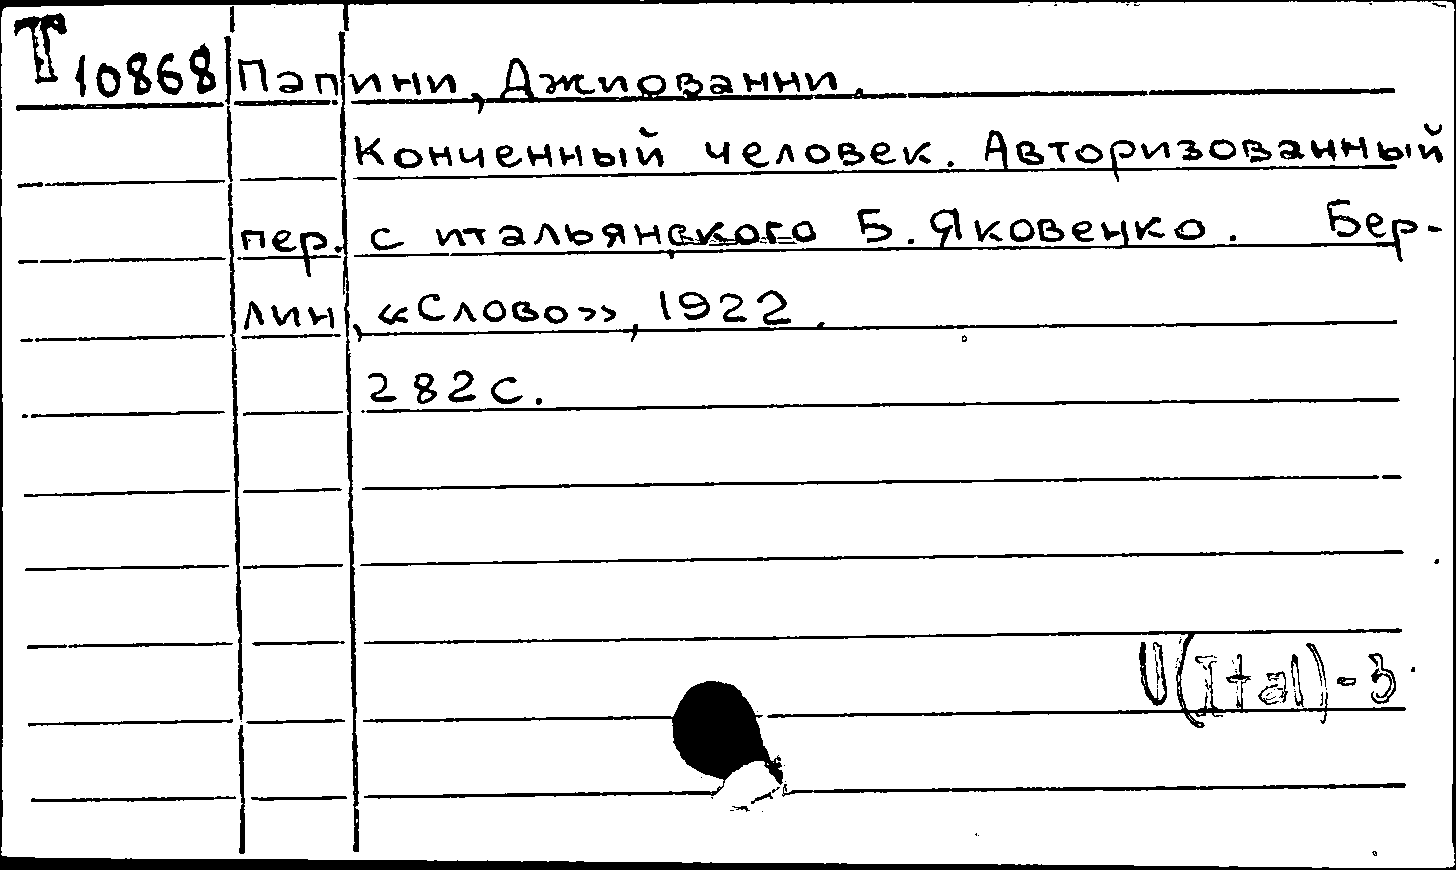 T 10868 Папини, Джиованни.
Конченный человек. Авторизованный
пер. с итальянского Б. Яковенко. Бер-
лин, «Слово», 1922.
282 с.
U(Ital)-3